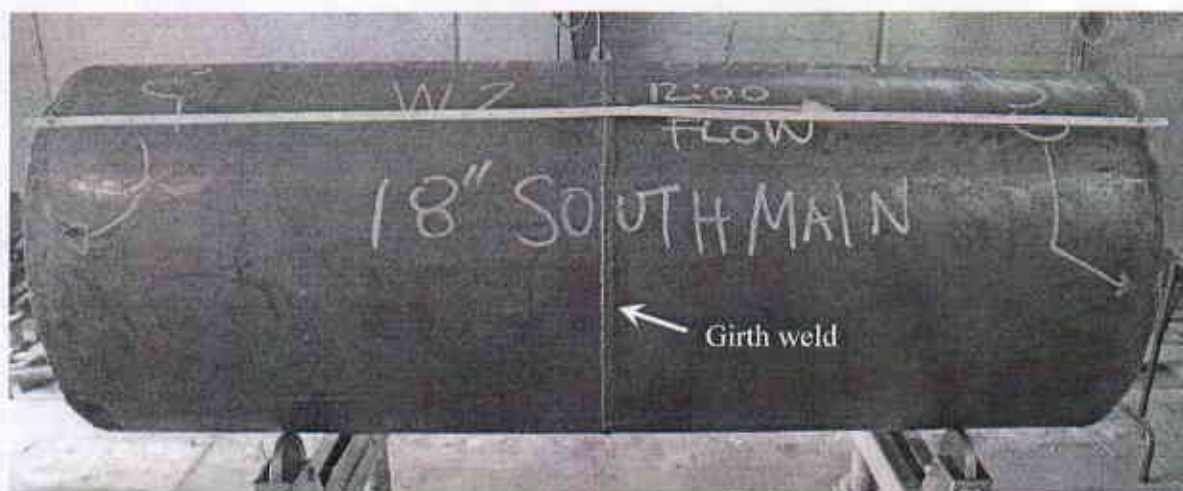 12:00
FLOW
18" SOUTH MAIN
Girth weld